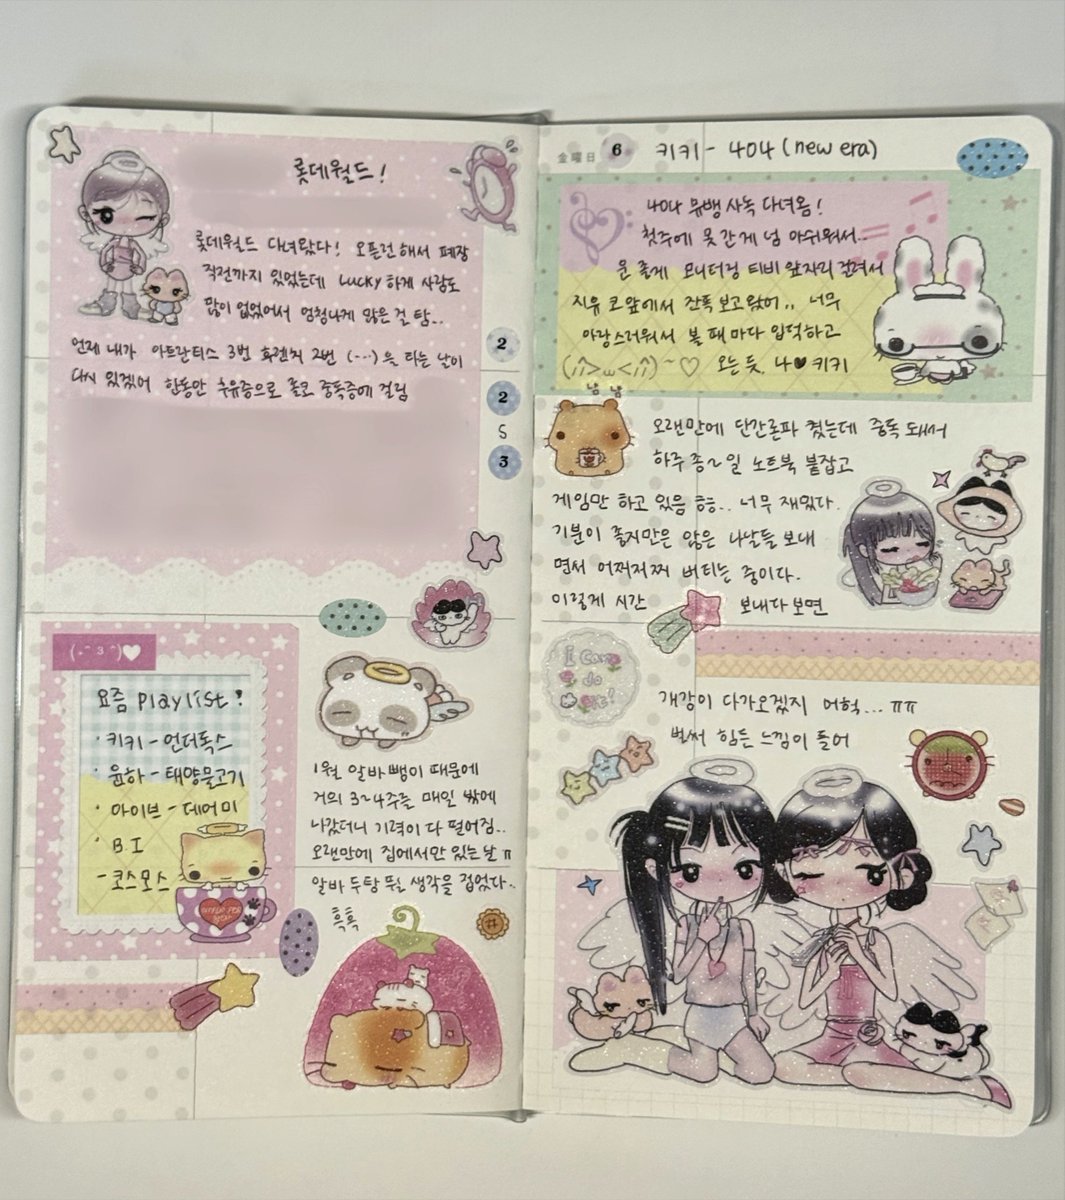 롯데월드!
롯데월드 다녀왔다! 오픈런해서 폐장
직전까지 있었는데 Lucky하게 사람도
많이 없었어서 엄청나게 많은 걸 탐..
언제 내가 아트란티스 3번 후렌치 2번 (...)을 타는 날이
다시 있겠어 한동안 후유증으로 롤코 중독증에 걸림
2
2
S
3
(·ˆ ³ ˆ)♥
요즘 Playlist!
· 키키 - 언더독스
· 윤하 - 태양물고기
· 아이브 - 데어미
· B.I
- 코스모스
1월 알바 뺑이 때문에
거의 3~4주를 매일 밖에
나갔더니 기력이 다 떨어짐..
오랜만에 집에서만 있는 날 ㅠ
알바 두탕 뛸 생각을 접었다..
흑흑
金曜日 6 키키 - 404 (new era)
404 뮤뱅 사녹 다녀옴!
첫주에 못 간 게 넘 아쉬워서..
운 좋게 모니터링 티비 앞자리 걸려서
지유 코앞에서 잔뜩 보고 왔어.. 너무
사랑스러워서 볼 때마다 입덕하고
오는 듯. 나♥키키
냠 냠
오랜만에 단간론파 켰는데 중독 돼서
하루 종~일 노트북 붙잡고
게임만 하고 있음 흐흐.. 너무 재밌다.
기분이 좋지만은 않은 나날들 보내
면서 어찌저찌 버티는 중이다.
이렇게 시간 보내다 보면
I Can
do
it!
개강이 다가오겠지 어헉... ㅠㅠ
벌써 힘든 느낌이 들어